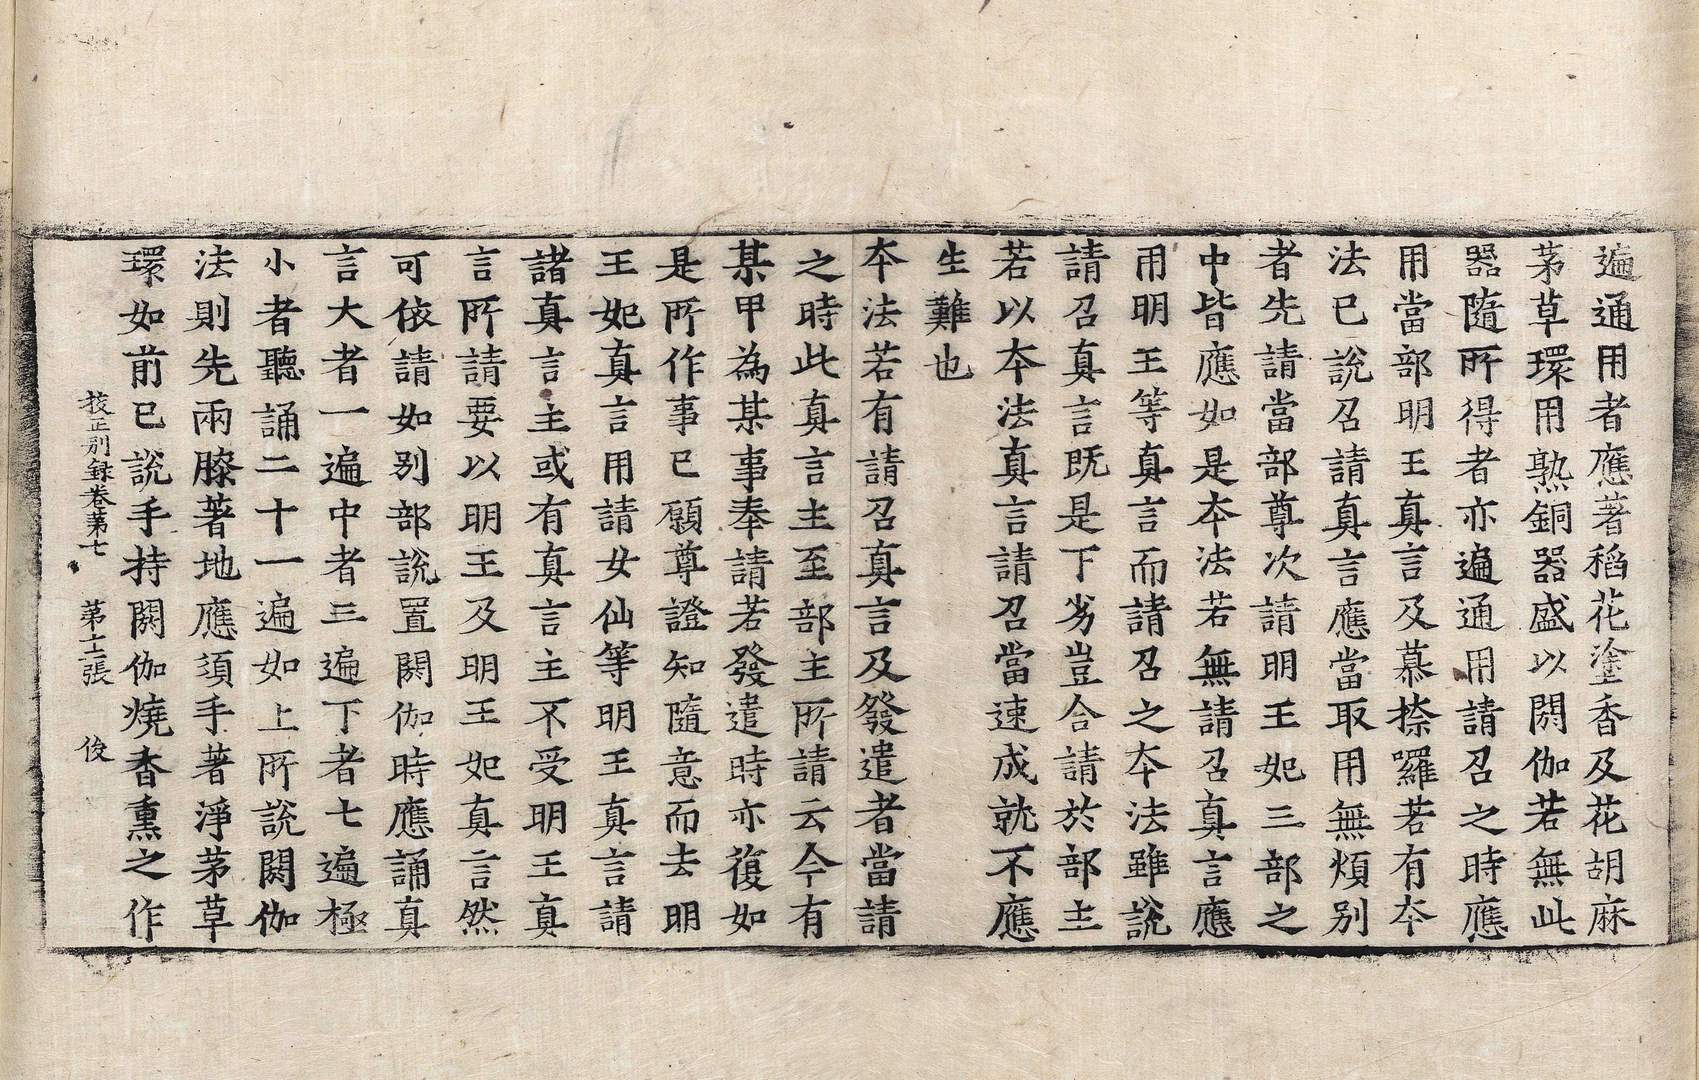 遍通用者應著稻花塗香及花胡麻
茅草環用熟銅器盛以閼伽若無此
器隨所得者亦遍通用請召之時應
用當部明王真言及慕捺囉若有本
法已說召請真言應當取用無煩別
者先請當部尊次請明王妃三部之
中皆應如是本法若無請召真言應
用明王等真言而請召之本法雖說
請召真言旣是下劣豈合請於部主
若以本法真言請召當速成就不應
生難也
本法若有請召真言及發遣者當請
之時此真言主至部主所請云今有
某甲為某事奉請若發遣時亦復如
是所作事已願尊證知隨意而去明
王妃真言用請女仙等明王真言請
諸真言主或有真言主不受明王真
言所請要以明王及明王妃真言然
可依請如別部說置閼伽時應誦真
言大者一遍中者三遍下者七遍極
小者聽誦二十一遍如上所說閼伽
法則先兩膝著地應須手著淨茅草
環如前已說手持閼伽燒香熏之作
校正別録卷第七 第十二張 俊